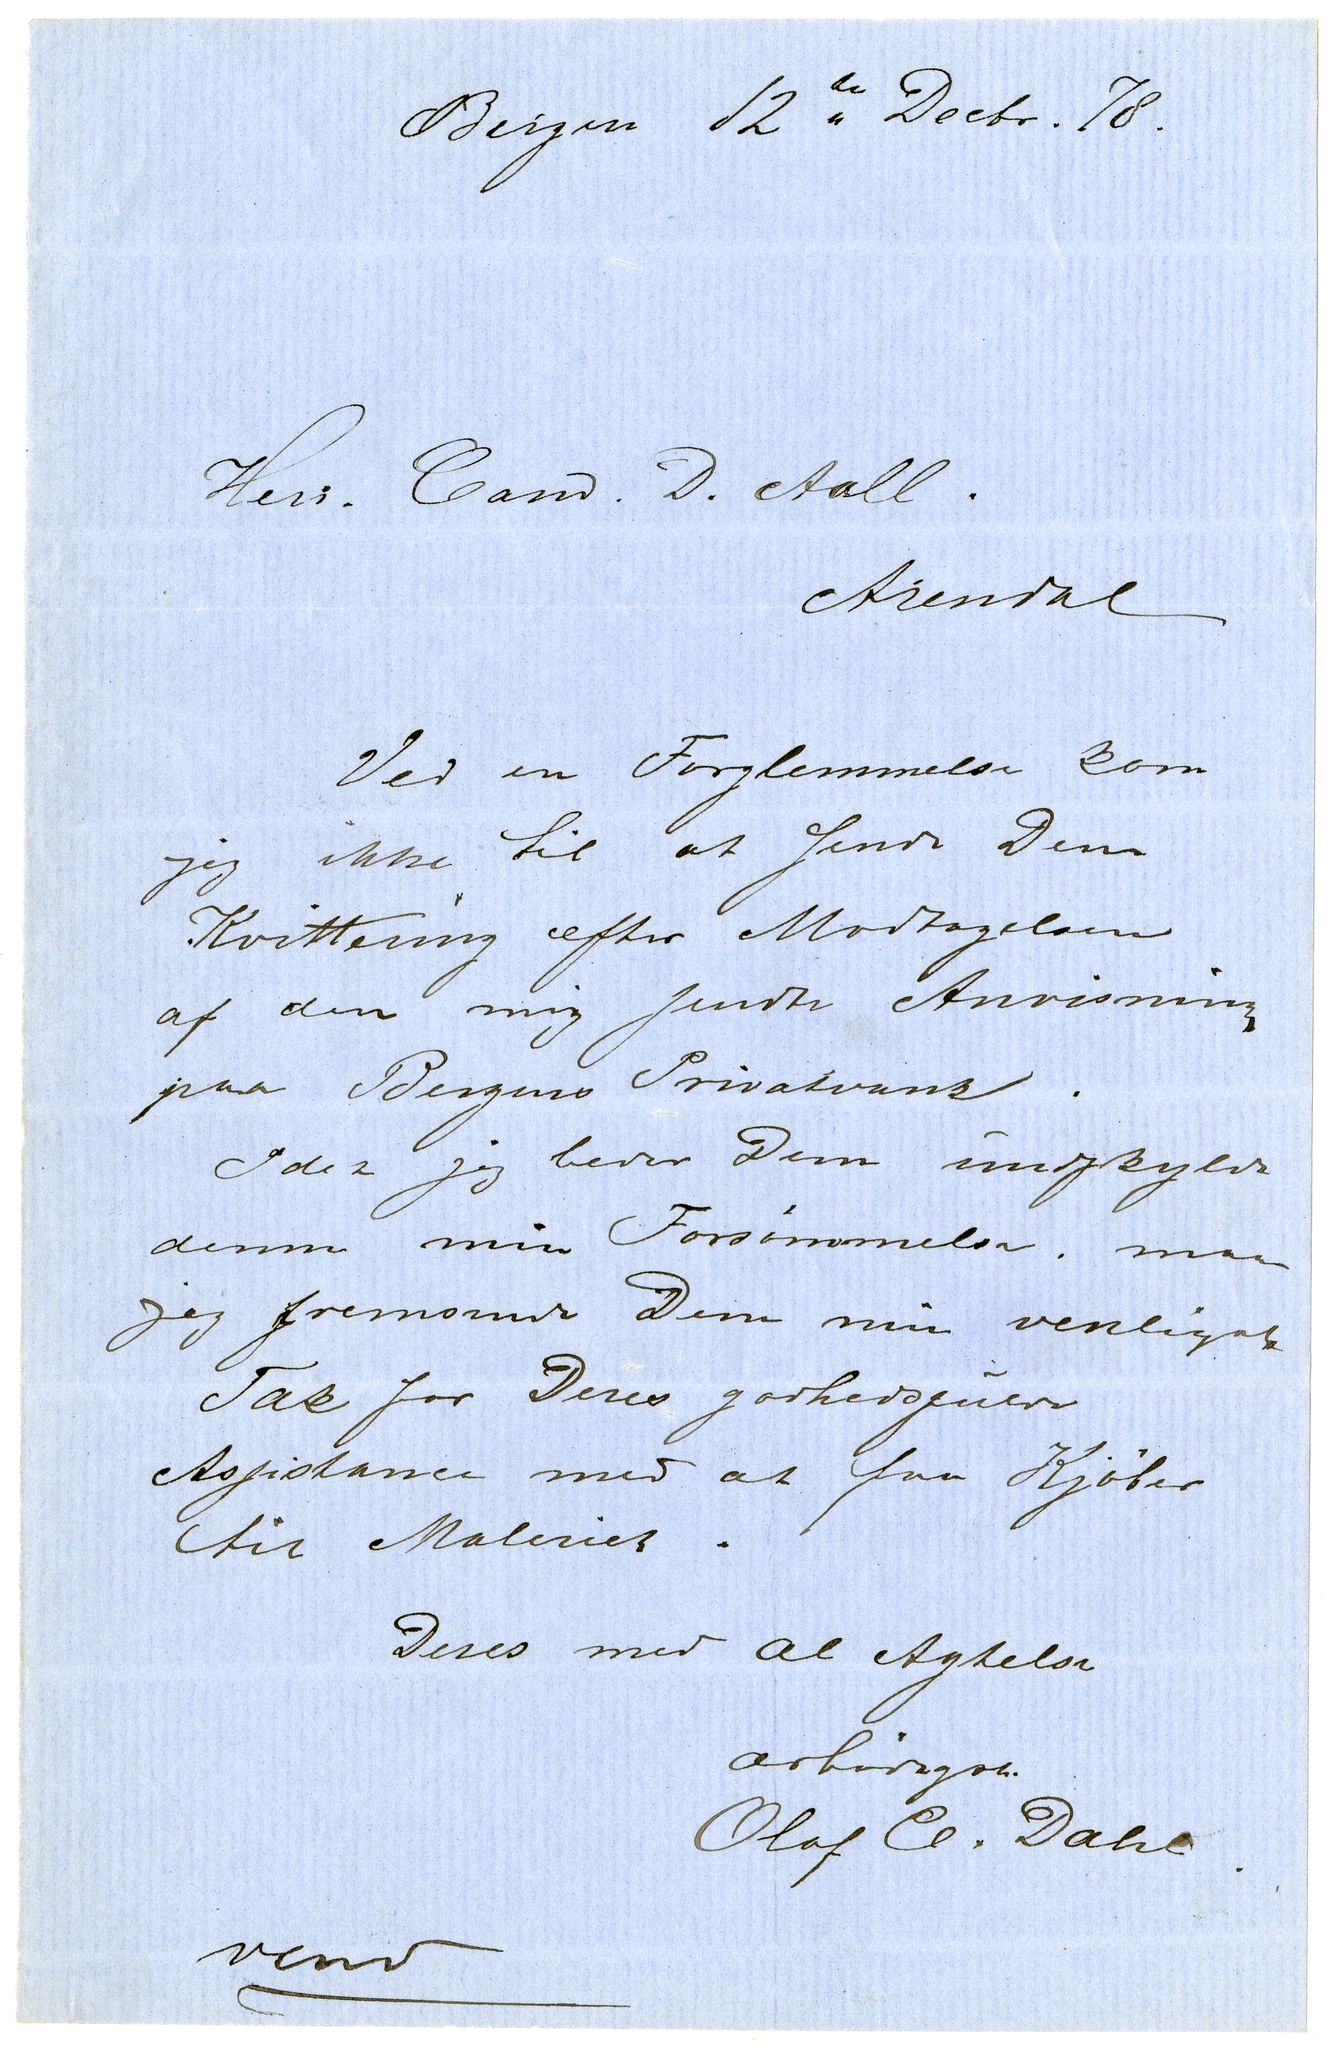 Bergen 12 de Decbr. 78.
Herr. Cand. D. Aall.
Arendal
Ved en Forglemmelse kom
jeg ikke til at sende Dem
Kvittering efter Modtagelsen
af den mig sendte Anvisning
paa Bergens Privatbank.
Idet jeg beder Dem undskylde
denne min Forsømmelse, maa
jeg fremsende Dem min venligste
Tak for Deres godhedsfulde
Assistance med at faa Kjøber
til Maleriet.
Deres med al Agtelse
ærbødigst.
Olaf C. Dahl.
vend